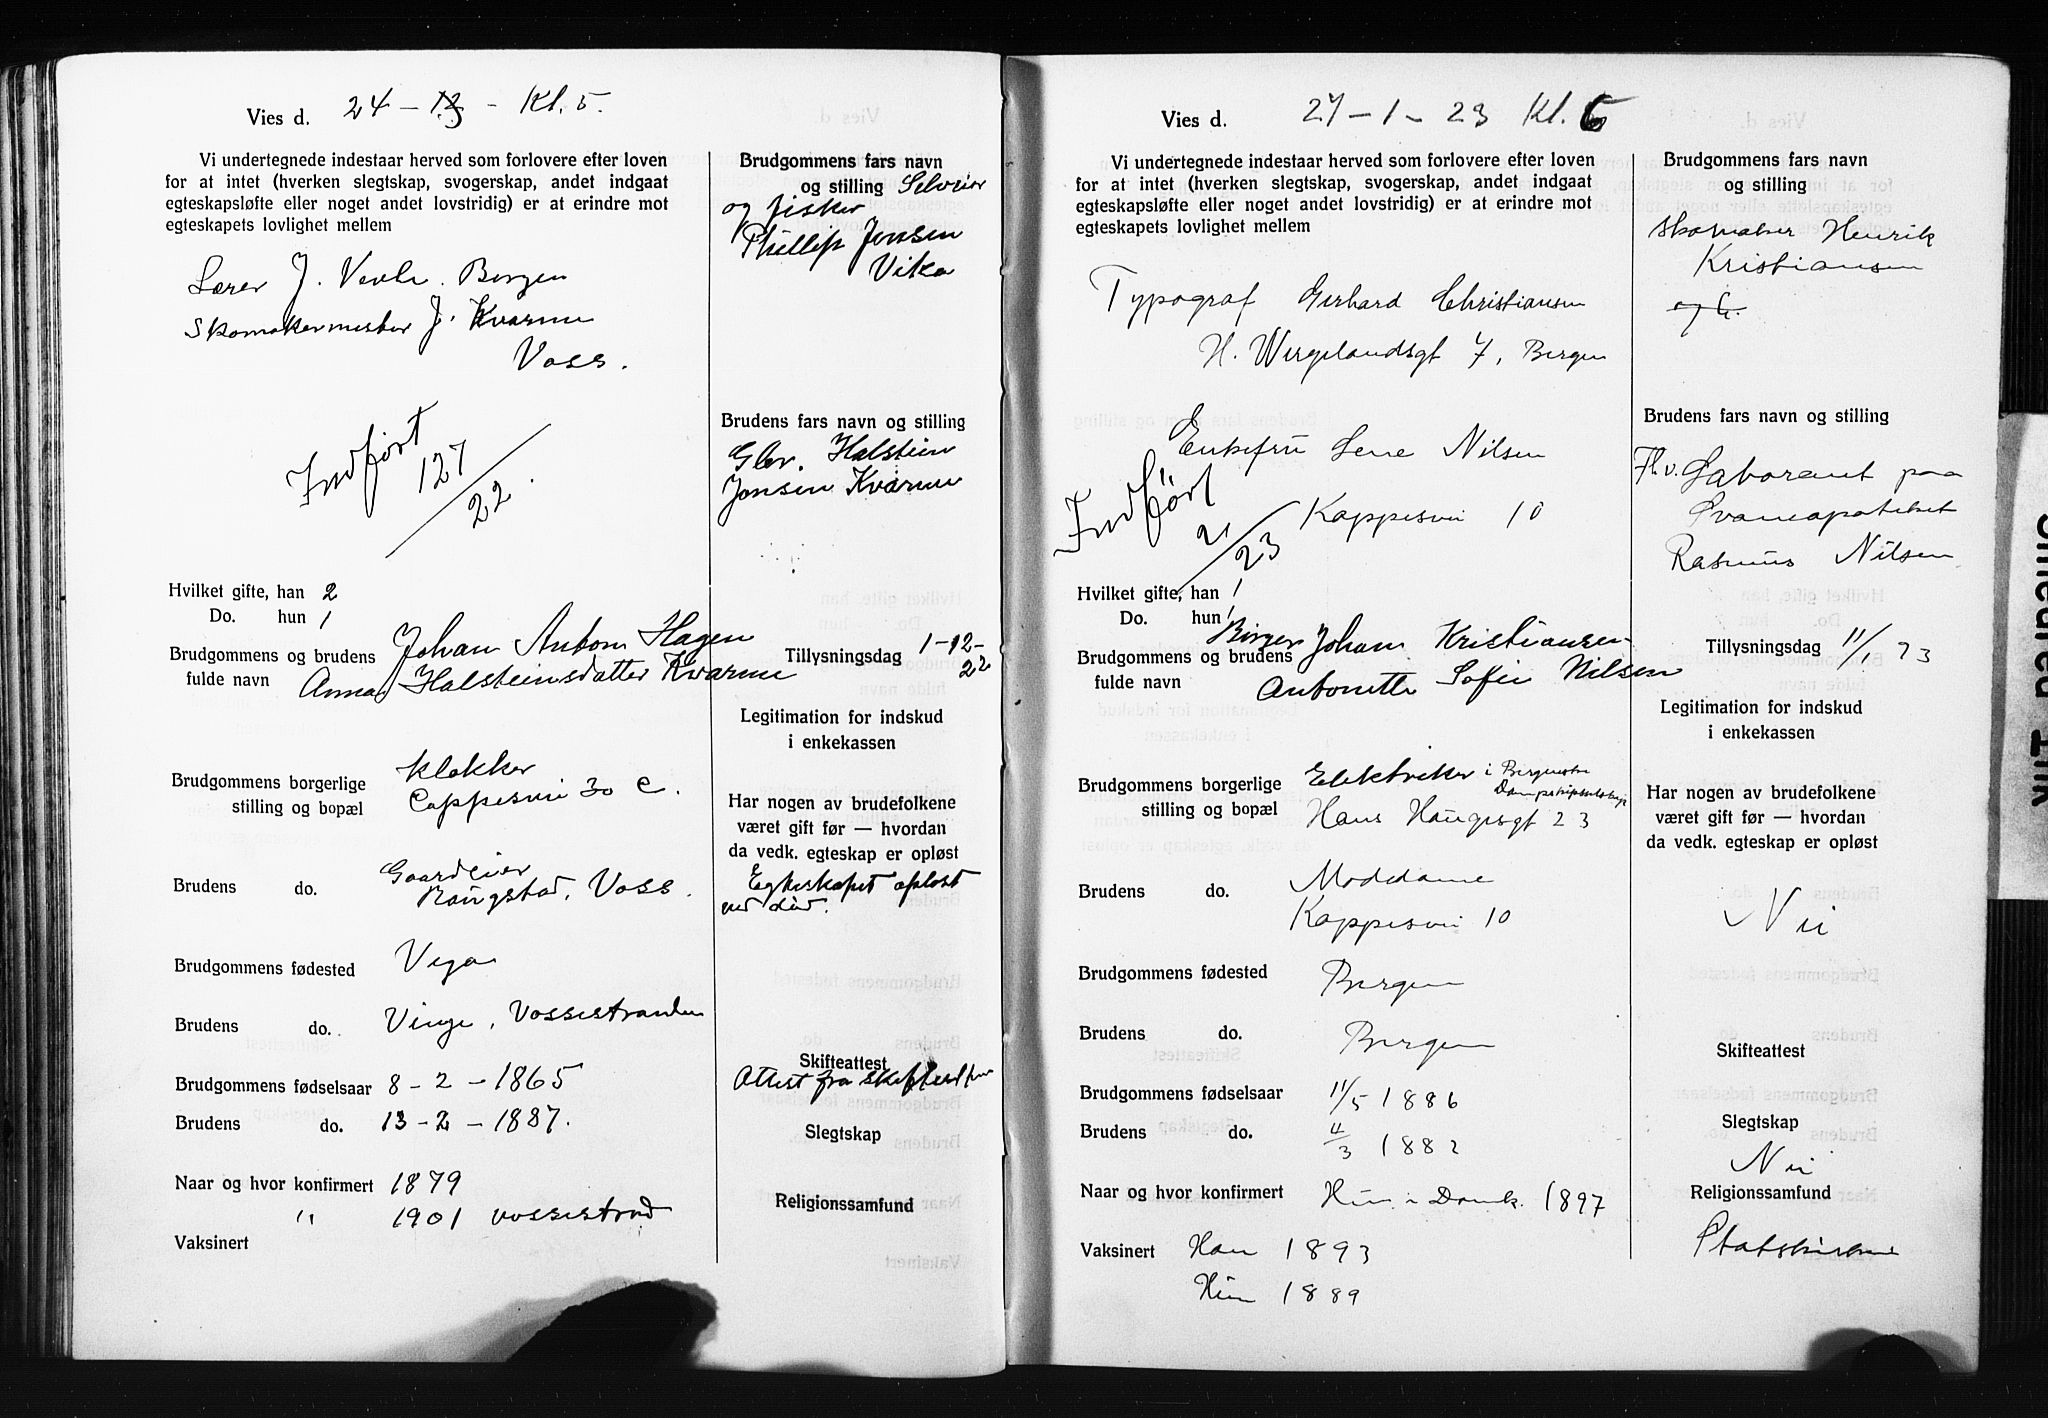 Vies d. 24 – 12 – Kl. 5.
Vi undertegnede indestaar herved som forlovere efter loven
for at intet (hverken slegtskap, svogerskap, andet indgaat
egteskapsløfte eller noget andet lovstridig) er at erindre mot
egteskapets lovlighet mellem
Lærer J. Bergen
Skomakermester J. Kvarme
Voss.
Indført
127
22.
Hvilket gifte, han 2
Do. hun 1
Brudgommens og brudens Johan Anton Hagen
fulde navn Anna Halsteinsdatter Kvarme
Brudgommens borgerlige Klokker
stilling og bopæl Cappesvei 30 c.
Brudens do. Gaardeier
Rongstad, Voss.
Brudgommens fødested Vega
Brudens do. Vinje, Vossestranden
Brudgommens fødselsaar 8 – 2 – 1865
Brudens do. 13 – 2 – 1887.
Naar og hvor konfirmert 1879
" 1901 Vossestrand
Vaksinert
Brudgommens fars navn
og stilling Selveier
og fisker
Phillip Jensen
Vika
Brudens fars navn og stilling
Gbr. Halstein
Jonsen Kvarme
Tillysningsdag 1–12–
22
Legitimation for indskud
i enkekassen
Har nogen av brudefolkene
været gift før — hvordan
da vedk. egteskap er opløst
Egteskapet opløst
ved død.
Skifteattest
Attest fra skifteretten
Slegtskap
Religionssamfund
Vies d. 27 – 1 – 23 Kl. 6
Vi undertegnede indestaar herved som forlovere efter loven
for at intet (hverken slegtskap, svogerskap, andet indgaat
egteskapsløfte eller noget andet lovstridig) er at erindre mot
egteskapets lovlighet mellem
Typograf Gerhard Christiansen
H. Wergelandsgt 7, Bergen
Enkefru Lene Nilsen
Kappesvei 10
Indført
2
23
Hvilket gifte, han 1
Do. hun 1
Brudgommens og brudens Birger Johan Kristiansen
fulde navn Antonette Sofie Nilsen
Brudgommens borgerlige Elektriker i Bergenske
Dampskipsselskap
stilling og bopæl Hans Haugesgt 23
Brudens do. Modedame
Kappesvei 10
Brudgommens fødested Bergen
Brudens do. Bergen
Brudgommens fødselsaar 11/5 1886
Brudens do. 4/3 1882
Naar og hvor konfirmert Hun i Domk. 1897
Vaksinert Han 1893
Hun 1889
Brudgommens fars navn
og stilling
Skomaker Henrik
Kristiansen
Brudens fars navn og stilling
Fhv. Laborant paa
Svaneapoteket
Rasmus Nilsen
Tillysningsdag 11/1 23
Legitimation for indskud
i enkekassen
Har nogen av brudefolkene
været gift før — hvordan
da vedk. egteskap er opløst
Nei
Skifteattest
Slegtskap
Nei
Religionssamfund
Statskirken